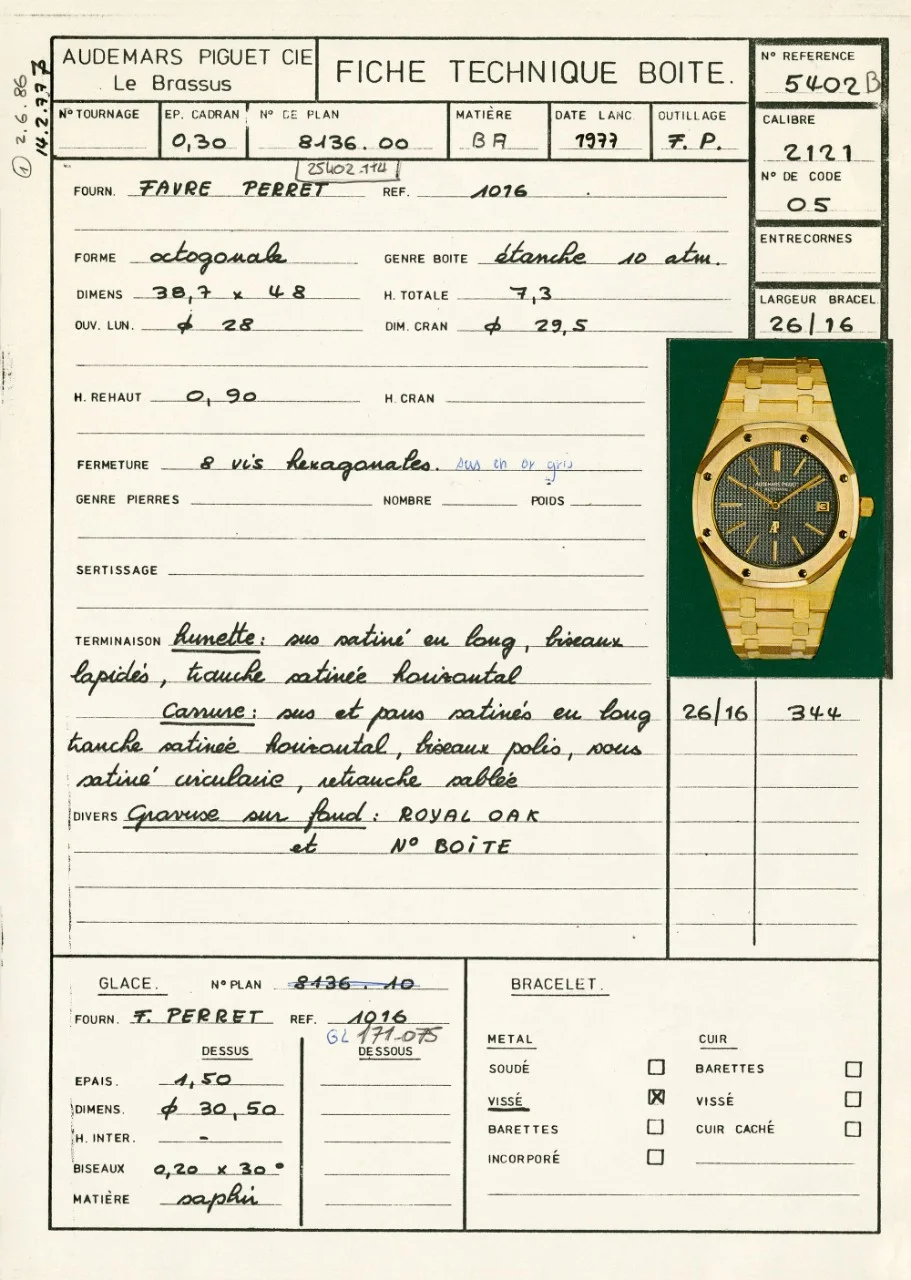 ① 2.6.86
14.2.77
AUDEMARS PIGUET CIE
Le Brassus
FICHE TECHNIQUE BOITE.
N° REFERENCE
5402B
N° TOURNAGE
EP. CADRAN
0,30
N° DE PLAN
8136.00
MATIÈRE
BA
DATE LANC.
1977
OUTILLAGE
F. P.
CALIBRE
2121
N° DE CODE
05
25402.114
FOURN. FAVRE PERRET REF. 1016
ENTRECORNES
FORME octogonale GENRE BOITE étanche 10 atm.
DIMENS 38,7 x 48 H. TOTALE 7,3
LARGEUR BRACEL.
26/16
OUV. LUN. ϕ 28 DIM. CRAN ϕ 29,5
H. REHAUT 0,90 H. CRAN
FERMETURE 8 vis hexagonales. sus en or gris
GENRE PIERRES NOMBRE POIDS
AUDEMARS PIGUET
SERTISSAGE
TERMINAISON lunette : sus satiné en long, biseaux
lapidés, tranche satinée horizontal
Carrure : sus et pans satinés en long
26/16 344
tranche satinée horizontal, biseaux polis, sous
satiné circulaire, retranche sablée
DIVERS Gravure sur fond : ROYAL OAK
et N° BOITE
GLACE. N° PLAN 8136.10
FOURN. F. PERRET REF. 1016
GL 171.075
DESSUS DESSOUS
EPAIS. 1,50
DIMENS. ϕ 30,50
H. INTER. -
BISEAUX 0,20 x 30°
MATIÈRE saphir
BRACELET.
METAL CUIR
SOUDÉ ☐ BARETTES ☐
VISSÉ ☒ VISSÉ ☐
BARETTES ☐ CUIR CACHÉ ☐
INCORPORÉ ☐